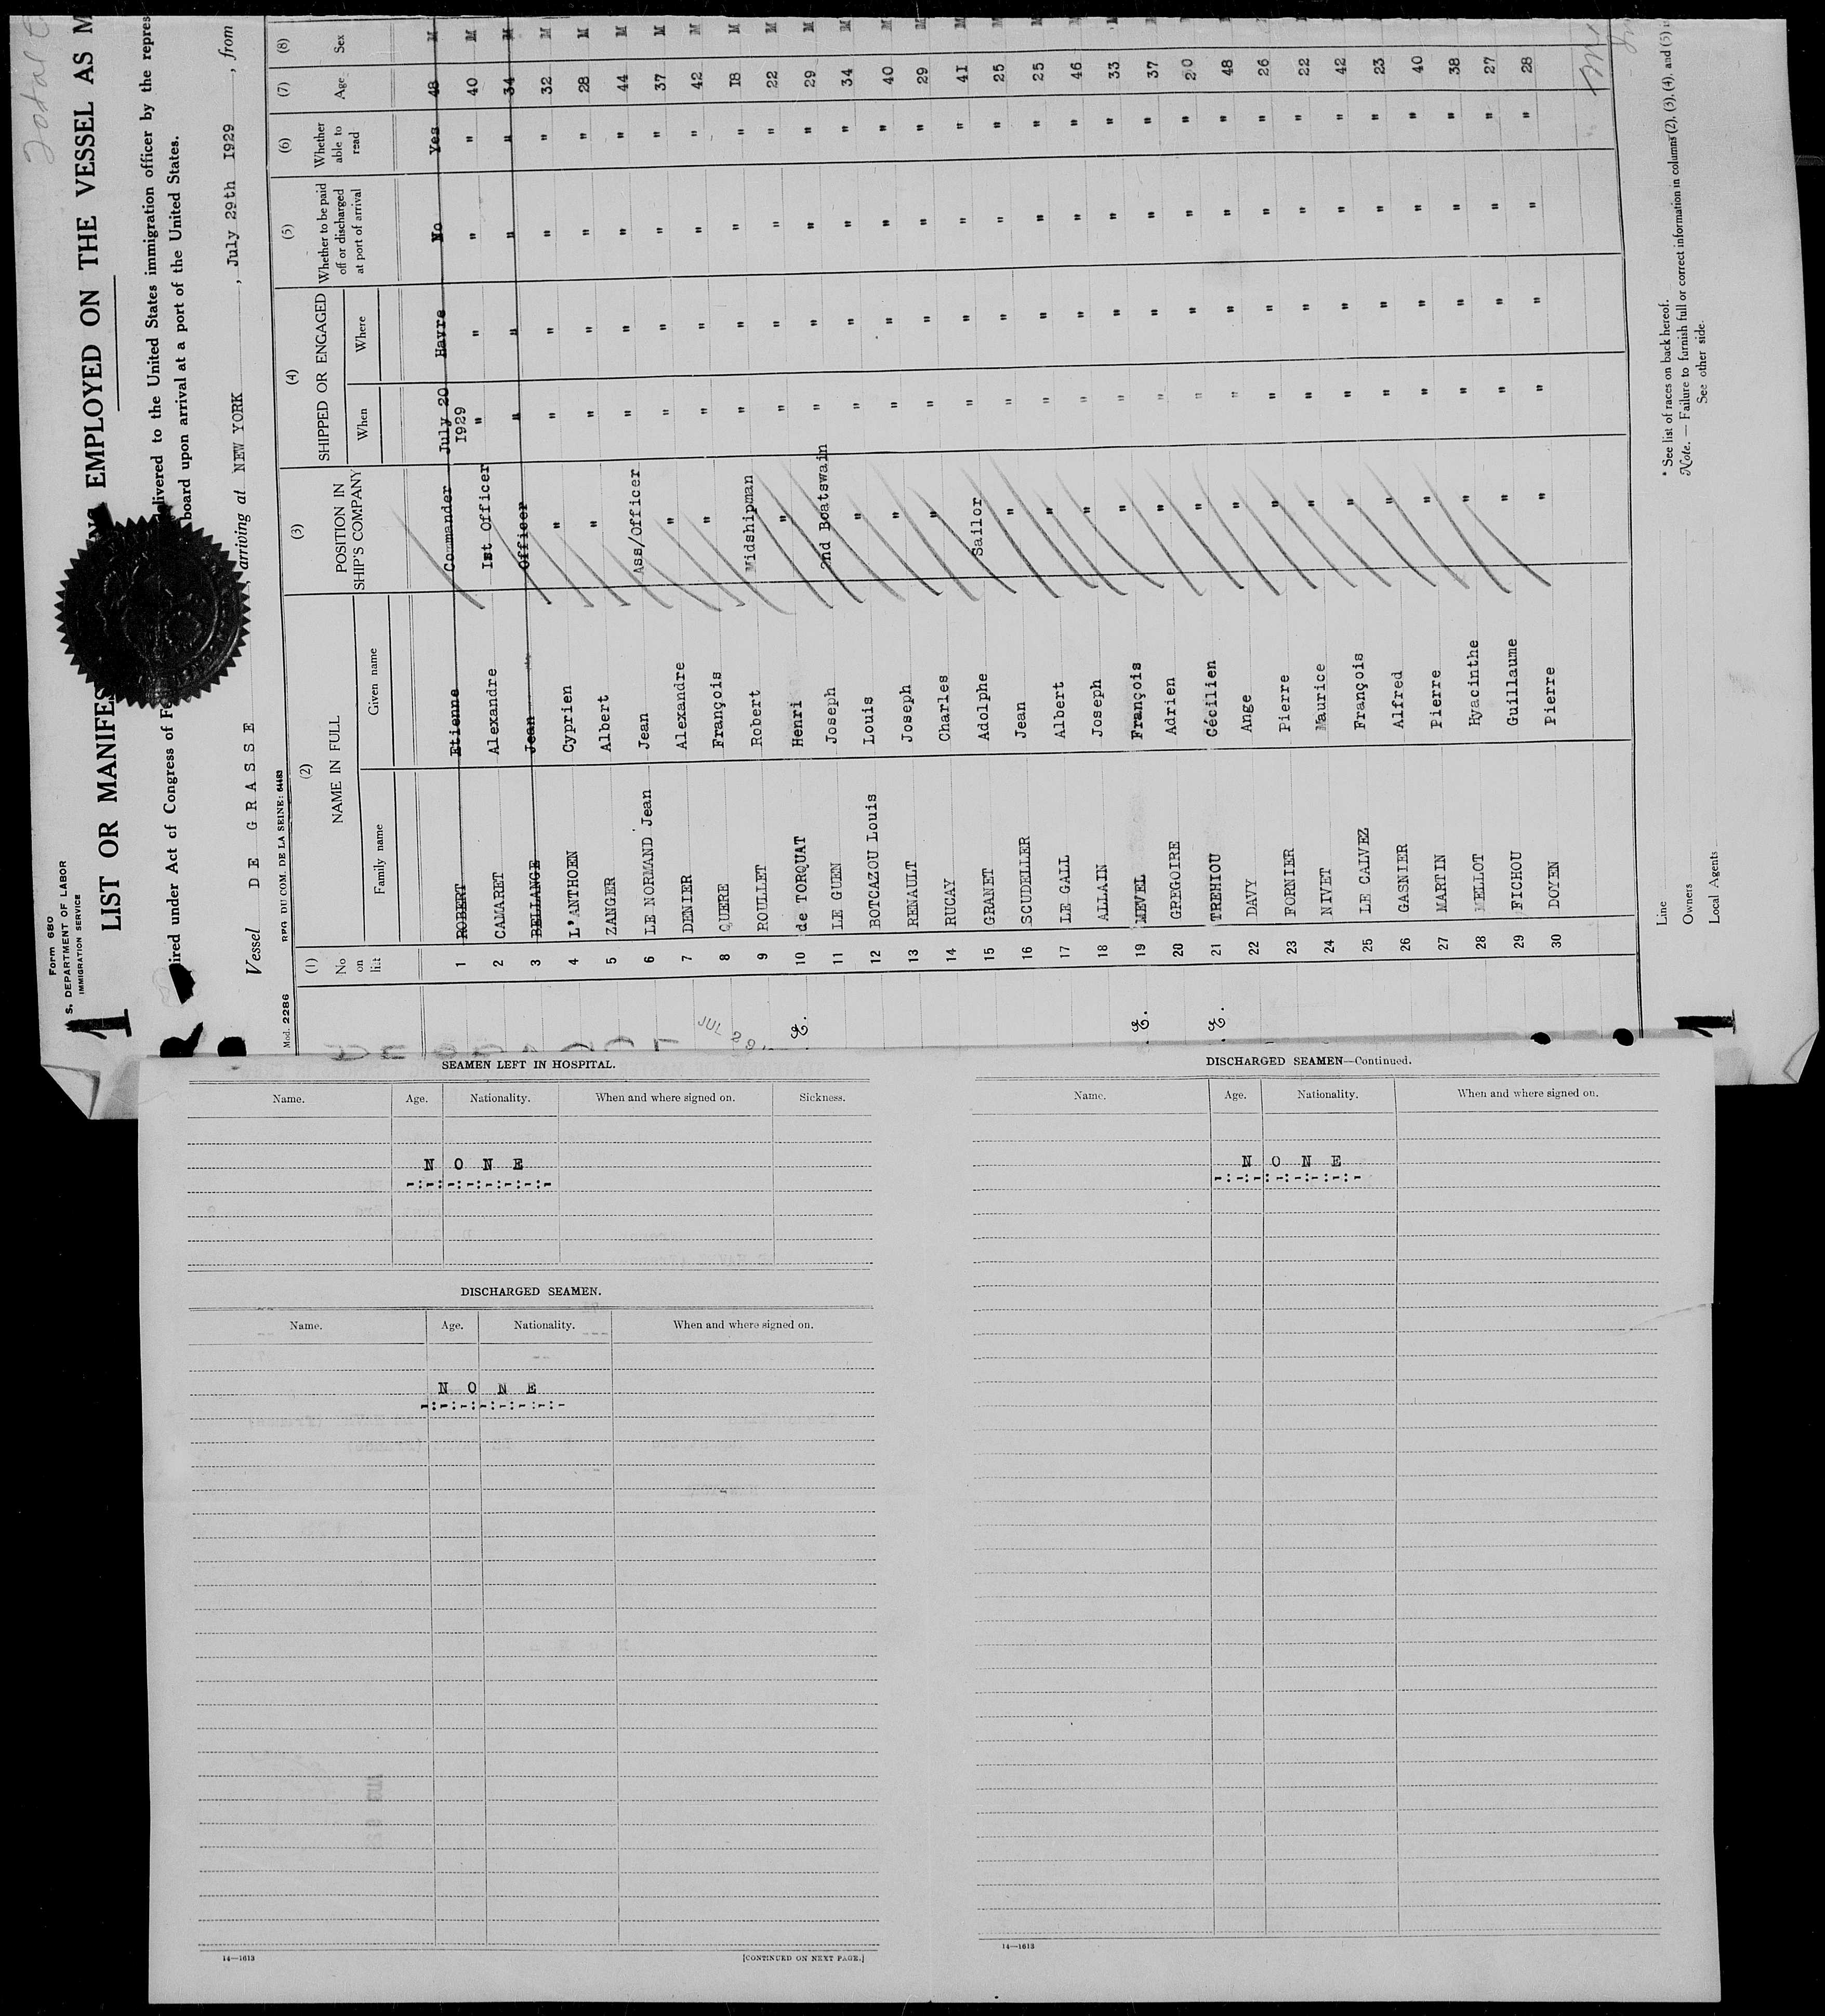 Form 680
S. DEPARTMENT OF LABOR
IMMIGRATION SERVICE
1
LIST OR MANIFES EMPLOYED ON THE VESSEL AS M
ired under Act of Congress of Fe elivered to the United States immigration officer by the repres
board upon arrival at a port of the United States.
Vessel DE GRASSE , arriving at NEW YORK , July 29th 1929 , from
Mod. 2286 DU COM. DE LA SEINE: 64483
(1) (2) (3) (4) (5) (6) (7) (8)
No on list NAME IN FULL POSITION IN SHIP'S COMPANY SHIPPED OR ENGAGED Whether to be paid off or discharged at port of arrival Whether able to read Age Sex
Family name Given name When Where
1 ROBERT Etienne Commander July 20 1929 Havre No Yes 48 M
2 CAMARET Alexandre Ist Officer " " " " 40 M
3 BELLANGE Jean Officer " " " " 34 M
4 L'ANTHOEN Cyprien " " " " " 32 M
5 ZANGER Albert " " " " " 28 M
6 LE NORMAND Jean Jean Ass/Officer " " " " 44 M
7 DENIER Alexandre " " " " " 37 M
8 QUERE François " " " " " 42 M
9 ROULLET Robert Midshipman " " " " I8 M
10 de TORQUAT Henri " " " " " 22 M
11 LE GUEN Joseph 2nd Boatswain " " " " 29 M
12 BOTCAZOU Louis Louis " " " " " 34 M
13 RENAULT Joseph " " " " " 40 M
14 RUCAY Charles " " " " " 29 M
15 GRANET Adolphe Sailor " " " " 4I M
16 SCUDELLER Jean " " " " " 25 M
17 LE GALL Albert " " " " " 25 M
18 ALLAIN Joseph " " " " " 46 M
19 MEVEL François " " " " " 33 M
20 GREGOIRE Adrien " " " " " 37 M
21 TREHIOU Cécilien " " " " " 20 M
22 DAVY Ange " " " " " 48 M
23 FORNIER Pierre " " " " " 26 M
24 NIVET Maurice " " " " " 22 M
25 LE CALVEZ François " " " " " 42 M
26 GASNIER Alfred " " " " " 23 M
27 MARTIN Pierre " " " " " 40 M
28 MELLOT Hyacinthe " " " " " 38 M
29 FICHOU Guillaume " " " " " 27 M
30 DOYEN Pierre " " " " " 28 M
Line
Owners
Local Agents
* See list of races on back hereof.
Note. — Failure to furnish full or correct information in columns (2), (3), (4), and (5) is
See other side.
1
SEAMEN LEFT IN HOSPITAL.
Name. Age. Nationality. When and where signed on. Sickness.
NONE
-:-:-:-:-:-:-
DISCHARGED SEAMEN.
Name. Age. Nationality. When and where signed on.
NONE
-:-:-:-:-:-:-
14—1613 [CONTINUED ON NEXT PAGE.]
DISCHARGED SEAMEN—Continued.
Name. Age. Nationality. When and where signed on.
NONE
-:-:-:-:-:-:-
14—1613